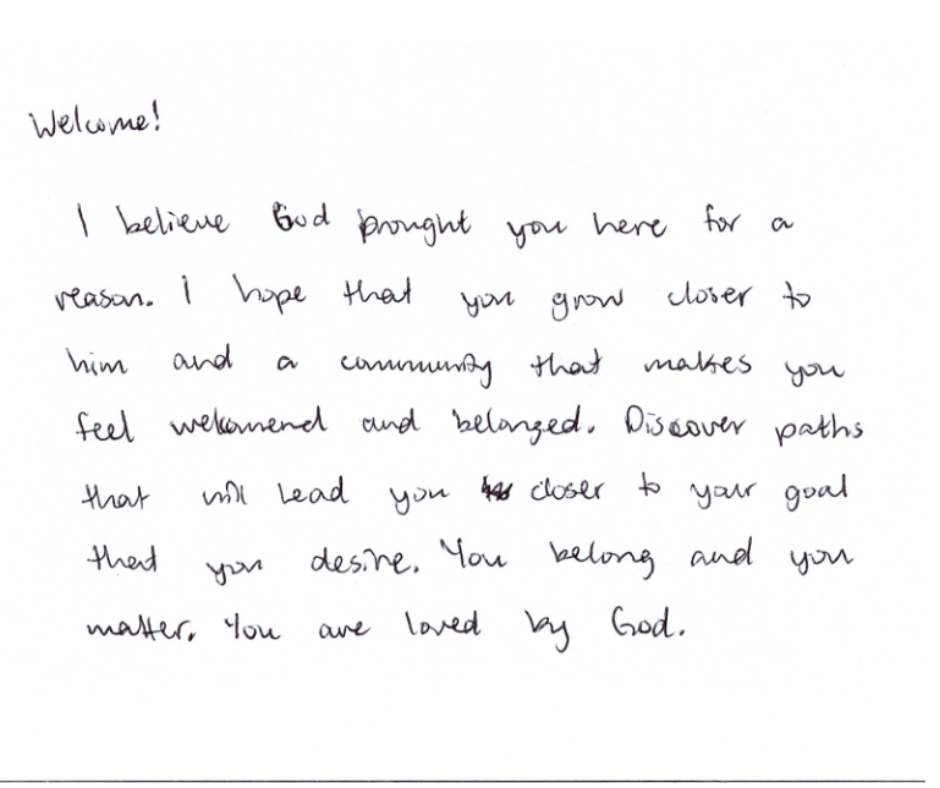 Welcome!
I believe God brought you here for a
reason. I hope that you grow closer to
him and a community that makes you
feel welcomend and belonged. Discover paths
that will lead you closer to your goal
that you desire. You belong and you
matter. You are loved by God.